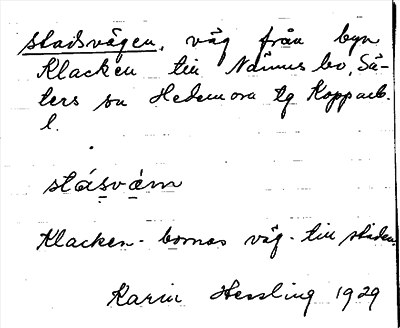 stadsvägen, väg från byn
Klacken till Nämnsbo, Sä-
ters sn Hedemora tg Kopparb.
l.
stásvä̀m
Klacken-bornas väg till staden.
Karin Hessling 1929